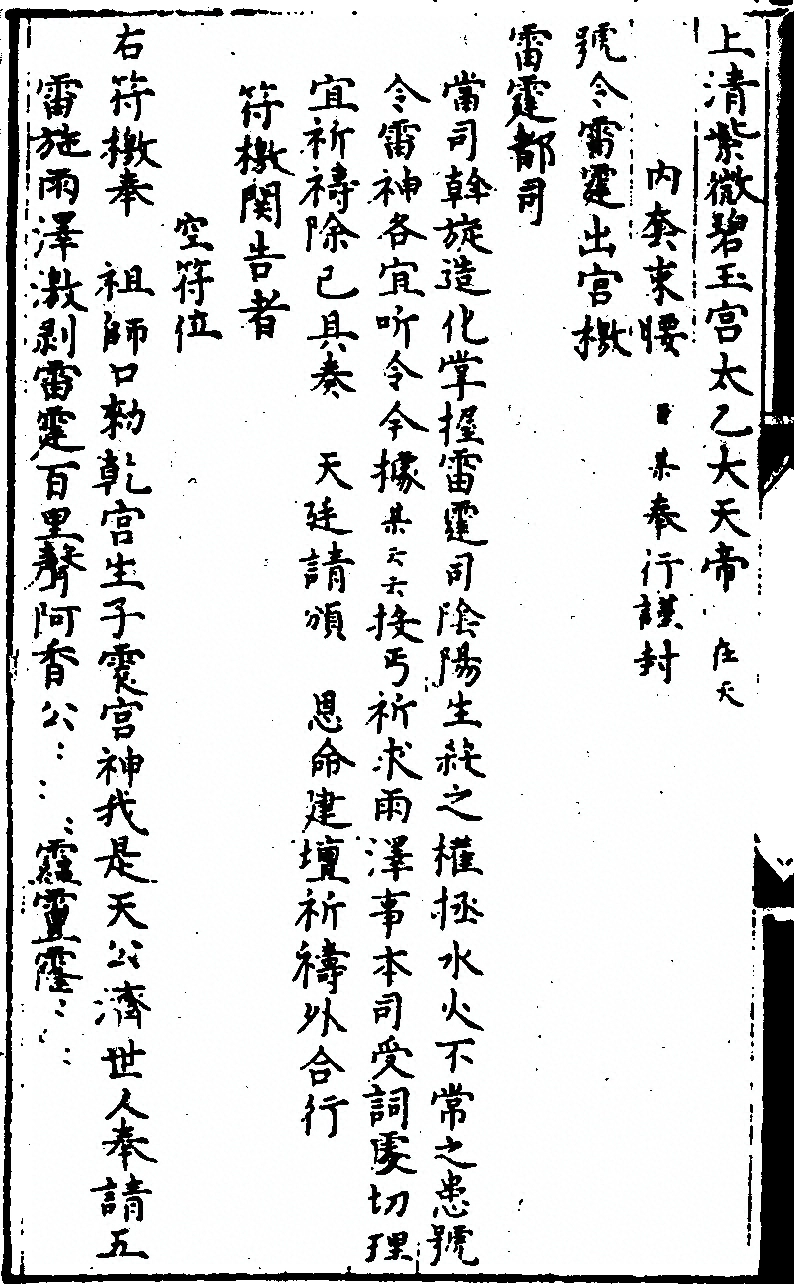 上清紫微碧玉宮太乙大天帝 在天
內套束腰 臣某奉行謹封
號令雷霆出宮檄
雷霆都司
當司斡旋造化掌握雷霆司陰陽生殺之權拯水火不常之患號
令雷神各宜听令今據某云云投丐祈求雨澤事本司受詞虔切理
宜祈禱除已具奏 天廷請頒 恩命建壇祈禱外合行
符檄関告者
空符位
右符檄奉 祖師口勑乾宮生子震宮神我是天公濟世人奉請五
雷施雨澤激剥雷霆百里聲阿香公